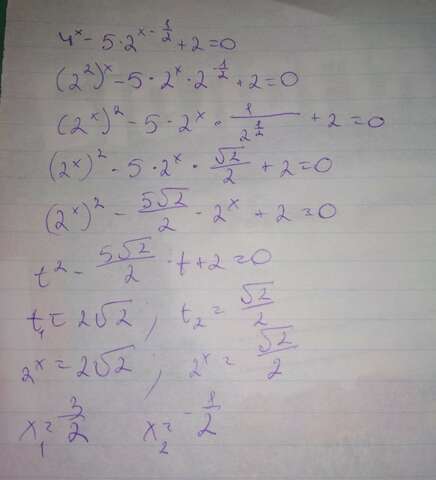 4^x - 5·2^{x - 1/2} + 2 = 0
(2^2)^x - 5·2^x·2^{-1/2} + 2 = 0
(2^x)^2 - 5·2^x·1/2^{1/2} + 2 = 0
(2^x)^2 - 5·2^x·√2/2 + 2 = 0
(2^x)^2 - 5√2/2 · 2^x + 2 = 0
t^2 - 5√2/2 · t + 2 = 0
t_1 = 2√2 ; t_2 = √2/2
2^x = 2√2 ; 2^x = √2/2
x_1 = 3/2 x_2 = -1/2